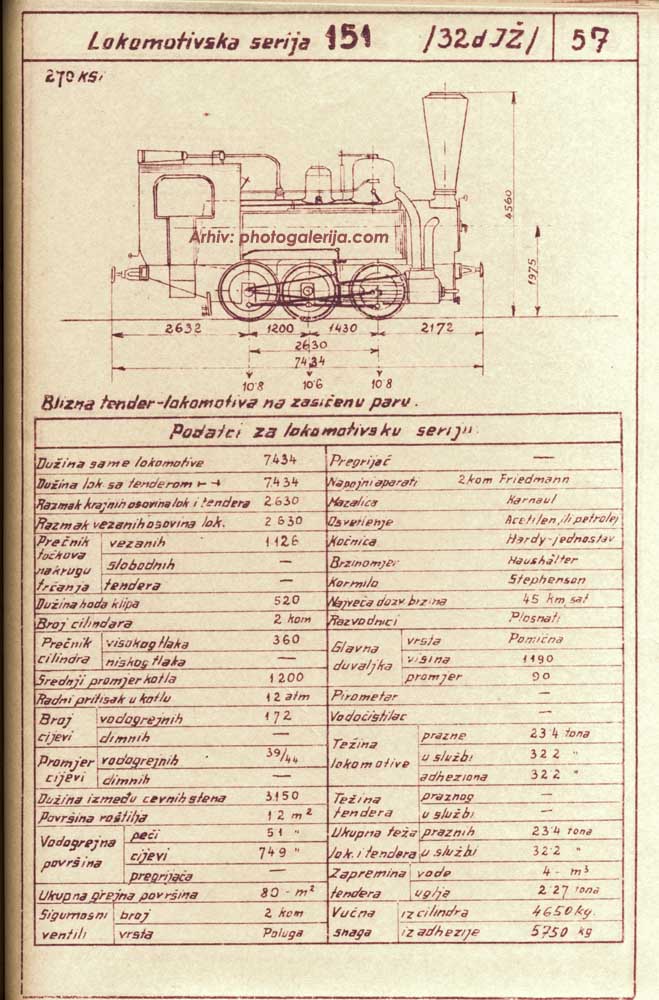 Lokomotivska serija 151 /32d JŽ/ 57
270 KS
4560
1975
Arhiv: photogalerija.com
2632 1200 1430 2172
2630
7434
10·8 10·6 10·8
Blizna tender-lokomotiva na zasićenu paru.
Podatci za lokomotivsku seriju.
Dužina same lokomotive 7434
Dužina lok. sa tenderom 7434
Razmak krajnih osovina lok i tendera 2630
Razmak vezanih osovina lok. 2630
Prečnik točkova na krugu trčanja
vezanih 1126
slobodnih —
tendera —
Dužina hoda klipa 520
Broj cilindara 2 kom
Prečnik cilindra
visokog tlaka 360
niskog tlaka —
Srednji promjer kotla 1200
Radni pritisak u kotlu 12 atm
Broj cijevi
vodogrejnih 172
dimnih —
Promjer cijevi
vodogrejnih 39/44
dimnih —
Dužina između cevnih stena 3150
Površina roštilja 1·2 m²
Vodogrejna površina
peći 5·1 "
cijevi 74·9 "
pregrijača —
Ukupna grejna površina 80 - m²
Sigurnosni ventili
broj 2 kom
vrsta Poluga
Pregrijač —
Napojni aparati 2 kom Friedmann
Mazalica Karnaul
Osvetlenje Acetilen, ili petrolej
Kočnica Hardy-jednostav
Brzinomjer Haushälter
Kormilo Stephenson
Najveća dozv. brzina 45 km sat
Razvodnici Plosnati
Glavna duvaljka
vrsta Pomična
visina 1190
promjer 90
Pirometar —
Vodočistilac —
Težina lokomotive
prazne 23·4 tona
u službi 32·2 "
adheziona 32·2 "
Težina tendera
praznog —
u službi —
Ukupna teža lok. i tendera
praznih 23·4 tona
u službi 32·2 "
Zapremina tendera
vode 4 - m³
uglja 2·27 tona
Vučna snaga
iz cilindra 4650 kg.
iz adhezije 5750 kg